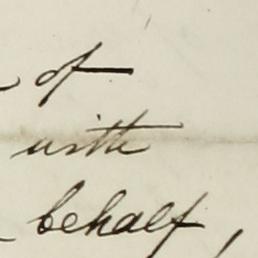 of
with
behalf,